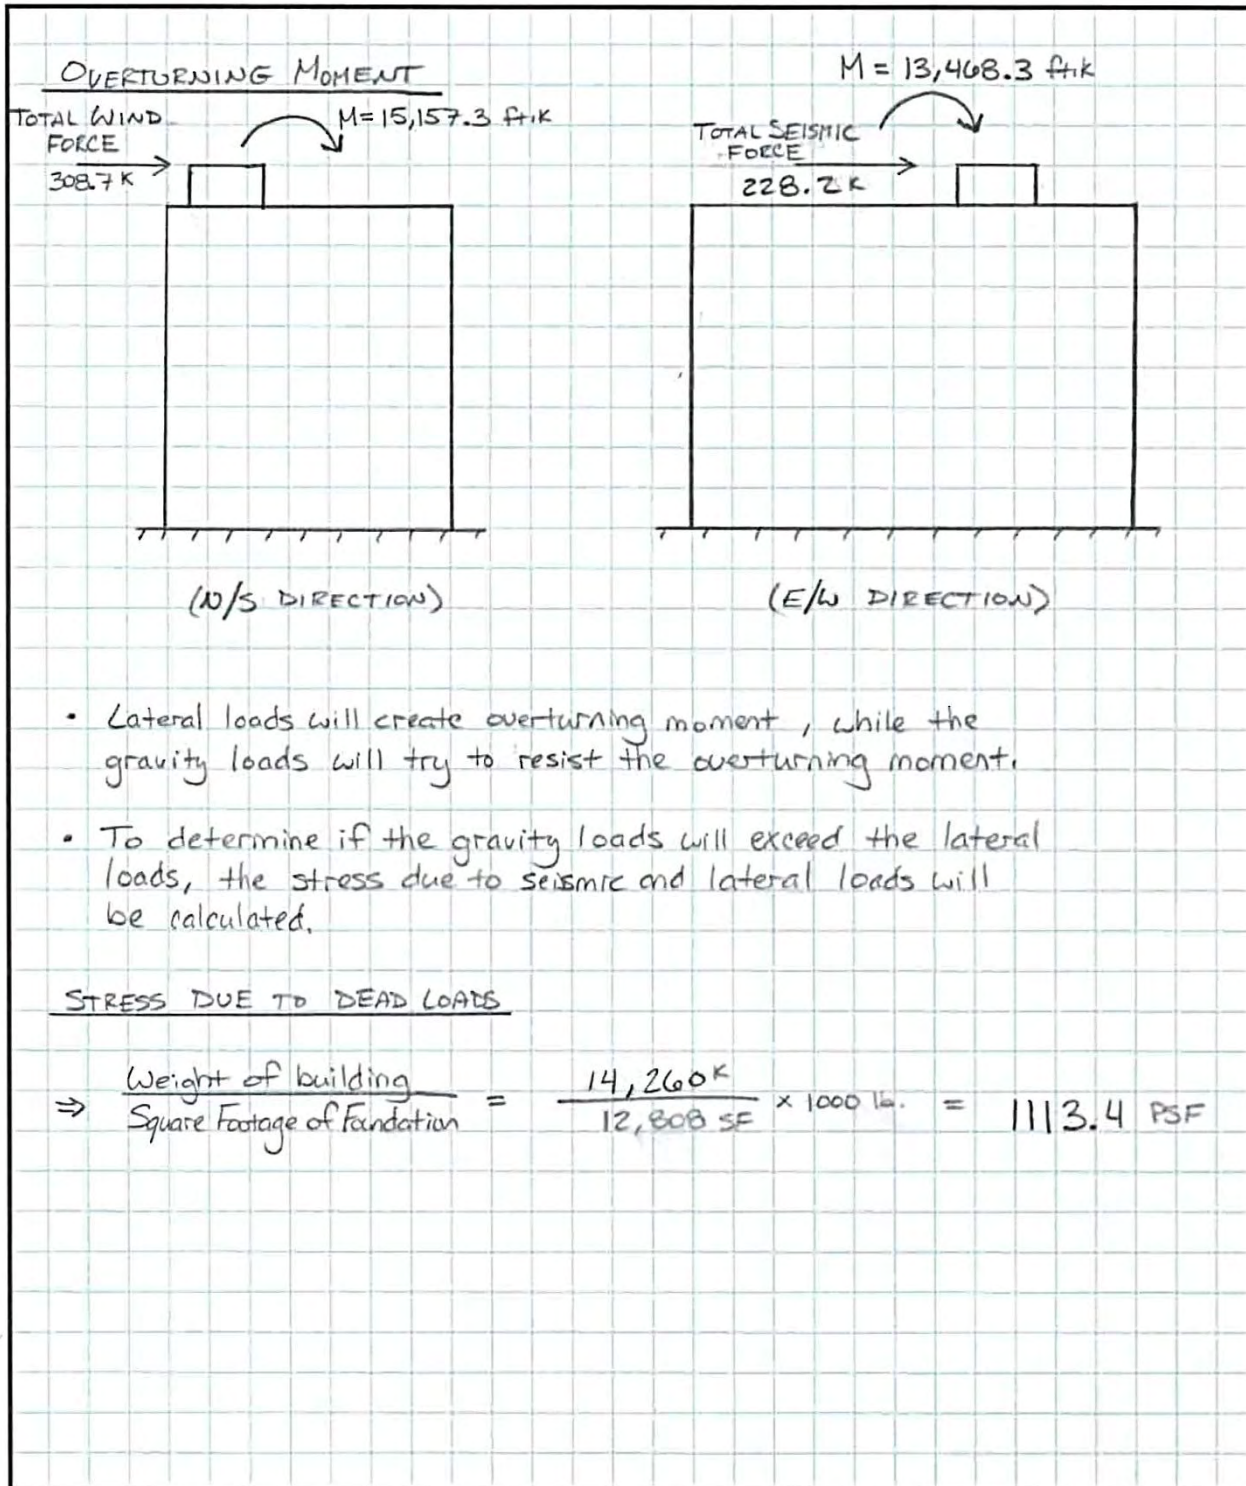 OVERTURNING MOMENT
TOTAL WIND
FORCE
308.7 K
M = 15,157.3 ft·k
M = 13,468.3 ft·k
TOTAL SEISMIC
FORCE
228.2 K
(N/S DIRECTION)
(E/W DIRECTION)
• Lateral loads will create overturning moment, while the
gravity loads will try to resist the overturning moment.
• To determine if the gravity loads will exceed the lateral
loads, the stress due to seismic and lateral loads will
be calculated.
STRESS DUE TO DEAD LOADS
⇒ Weight of building / Square Footage of Foundation = 14,260 K / 12,808 SF × 1000 lb. = 1113.4 PSF